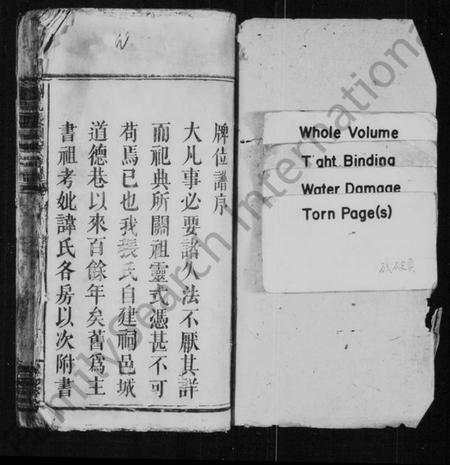 牌位譜序
大凡事必要諸久法不厭其詳
而祀典所關祖靈式憑甚不可
苟焉已也我張氏自建祠邑城
道德巷以來百餘年矣舊為主
書祖考妣諱氏各房以次附書
Whole Volume
Tight Binding
Water Damage
Torn Page(s)
FamilySearch International